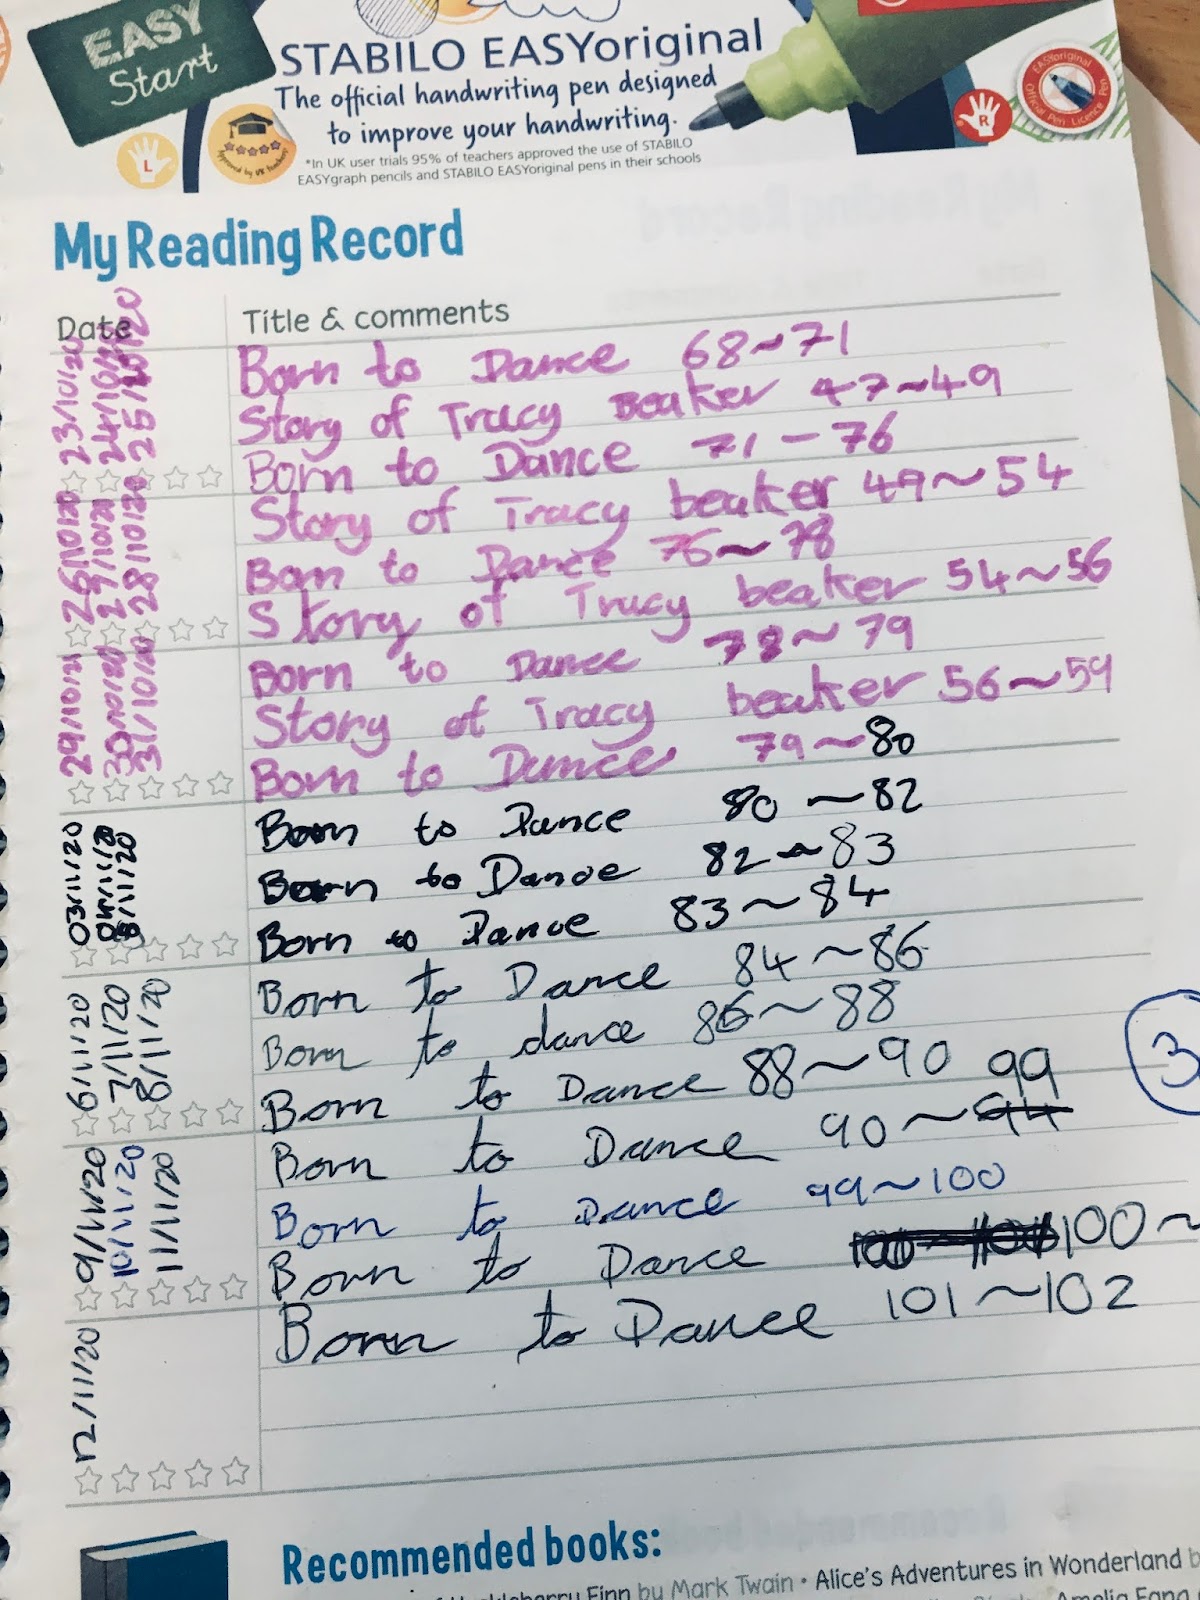 EASY
Start
STABILO EASYoriginal
The official handwriting pen designed
to improve your handwriting.
*In UK user trials 95% of teachers approved the use of STABILO
EASYgraph pencils and STABILO EASYoriginal pens in their schools
L
R
EASYoriginal
Official Pen Licence
My Reading Record
Date
Title & comments
23/10/20
24/10/20
25/10/20
Born to Dance 68~71
Story of Tracy Beaker 47~49
Born to Dance 71-76
26/10/20
27/10/20
28/10/20
Story of Tracy beaker 49~54
Born to Dance 76~78
Story of Tracy beaker 54~56
29/10/21
30/10/20
31/10/20
Born to Dance 78~79
Story of Tracy beaker 56~59
Born to Dance 79~80
03/11/20
Born to Dance 80~82
Born to Dance 82~83
Born to Dance 83~84
6/11/20
7/11/20
8/11/20
Born to Dance 84~86
Born to dance 86~88
Born to Dance 88~90
9/11/20
10/11/20
11/11/20
Born to Dance 90~94 99
Born to Dance 99~100
Born to Dance 100~
12/11/20
Born to Dance 101~102
3
Recommended books:
Finn by Mark Twain • Alice's Adventures in Wonderland